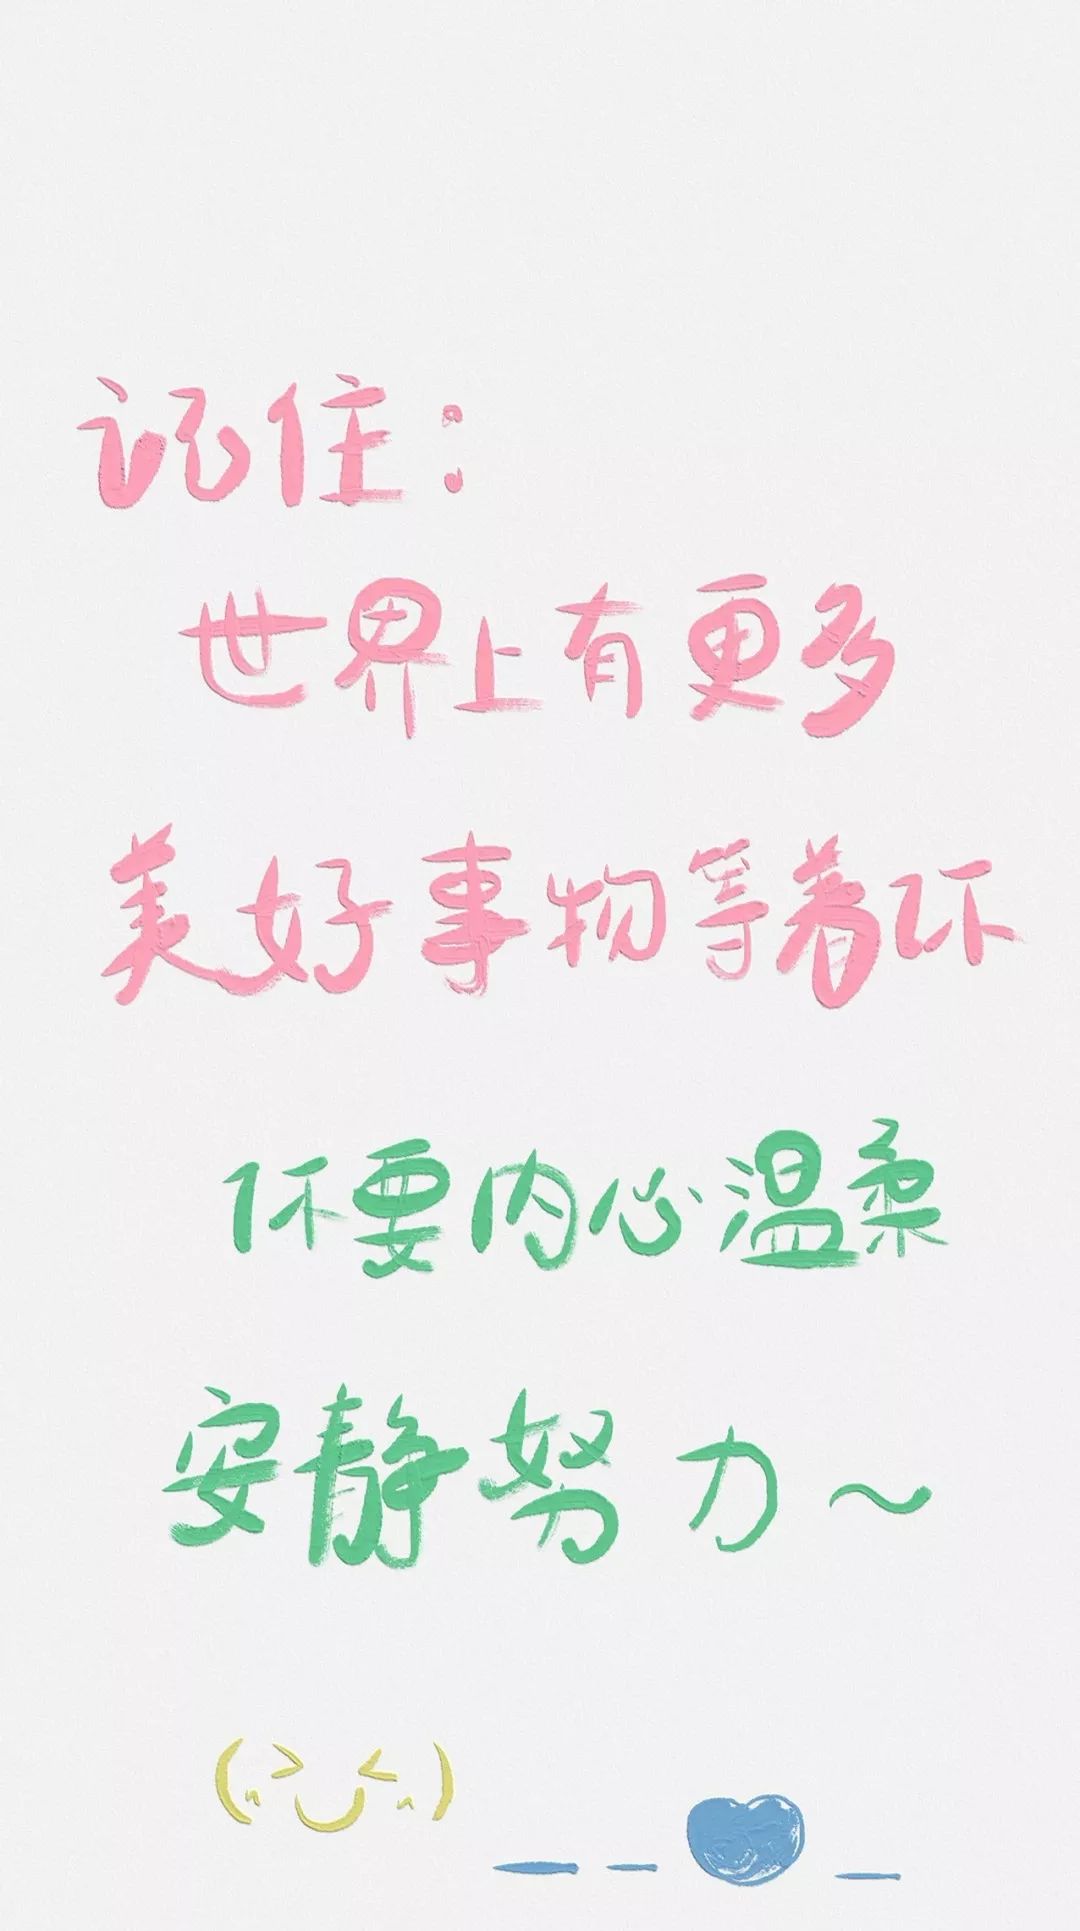 记住：
世界上有更多
美好事物等着你
你要内心温柔
安静努力～